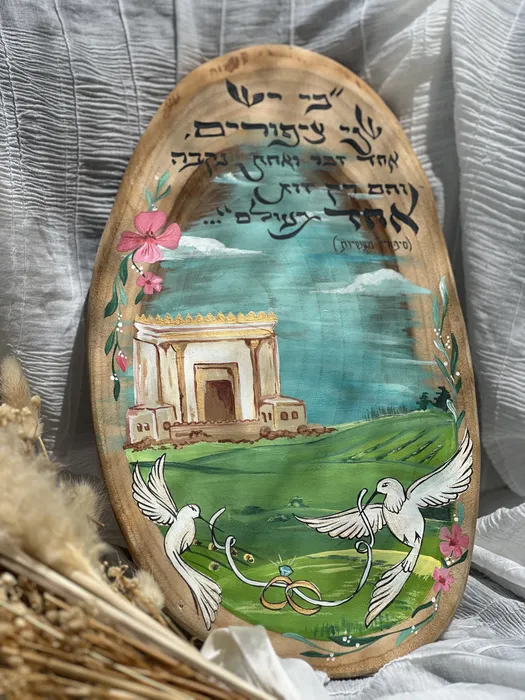 "כי יש
שני ציפורים,
אחד זכר ואחת נקבה
והם רק זוג
אחד בעולם"...
(סיפורי מעשיות)